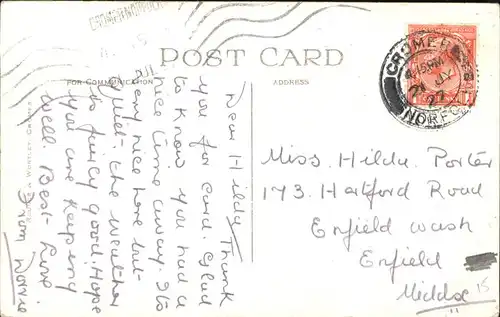 POST CARD
FOR COMMUNICATION
ADDRESS
CROMER
4.15 PM
21 JY
27
NORFOLK
Dear Hilda, Thank
you for card. Glad
to know you had a
nice time away. Its
very nice here but
quiet. the weather
is fairly good. Hope
you are keeping
well. Best Love.
From Dorrie
Miss. Hilda Porter
173. Hartford Road
Enfield Wash
Enfield
Middx
15